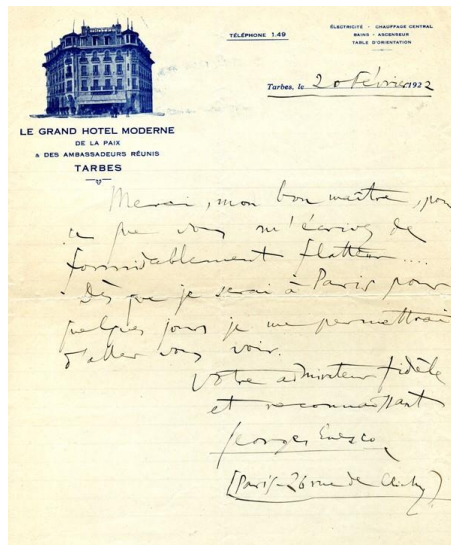 TÉLÉPHONE 1.49
ÉLECTRICITÉ - CHAUFFAGE CENTRAL
BAINS - ASCENSEUR
TABLE D'ORIENTATION
Tarbes, le 20 Février 1922
LE GRAND HOTEL MODERNE
DE LA PAIX
& DES AMBASSADEURS RÉUNIS
TARBES
Merci, mon bon maître, pour
ce que vous m'écrivez de
formidablement flatteur....
Dès que je serai à Paris pour
quelques jours je me permettrai
d'aller vous voir.
Votre admirateur fidèle
et reconnaissant
Georges Enesco
(Paris-26 rue de Clichy)